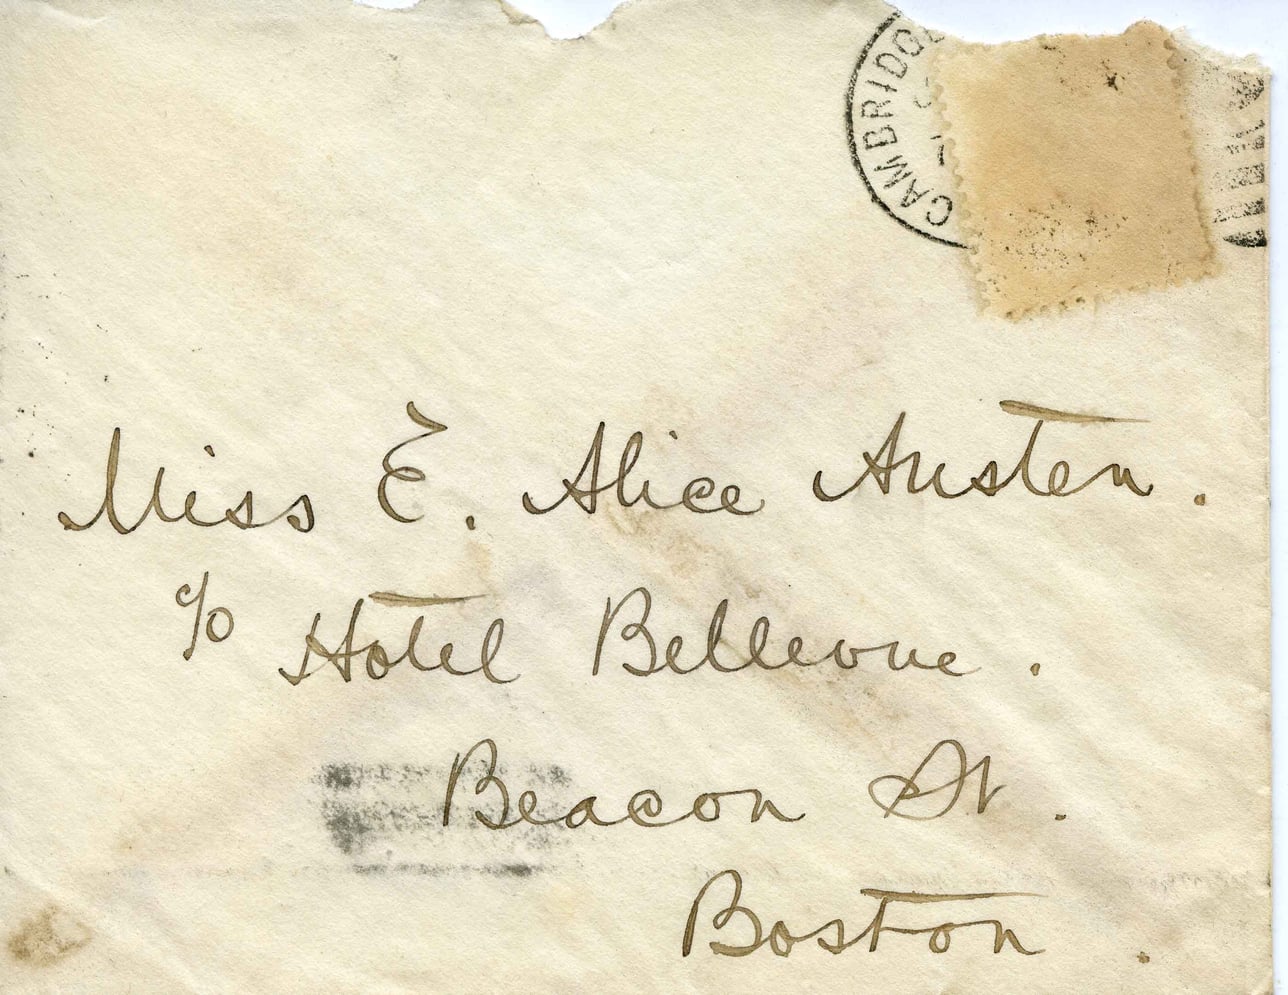 CAMBRIDGE
Miss E. Alice Austen.
c/o Hotel Bellevue.
Beacon St.
Boston.